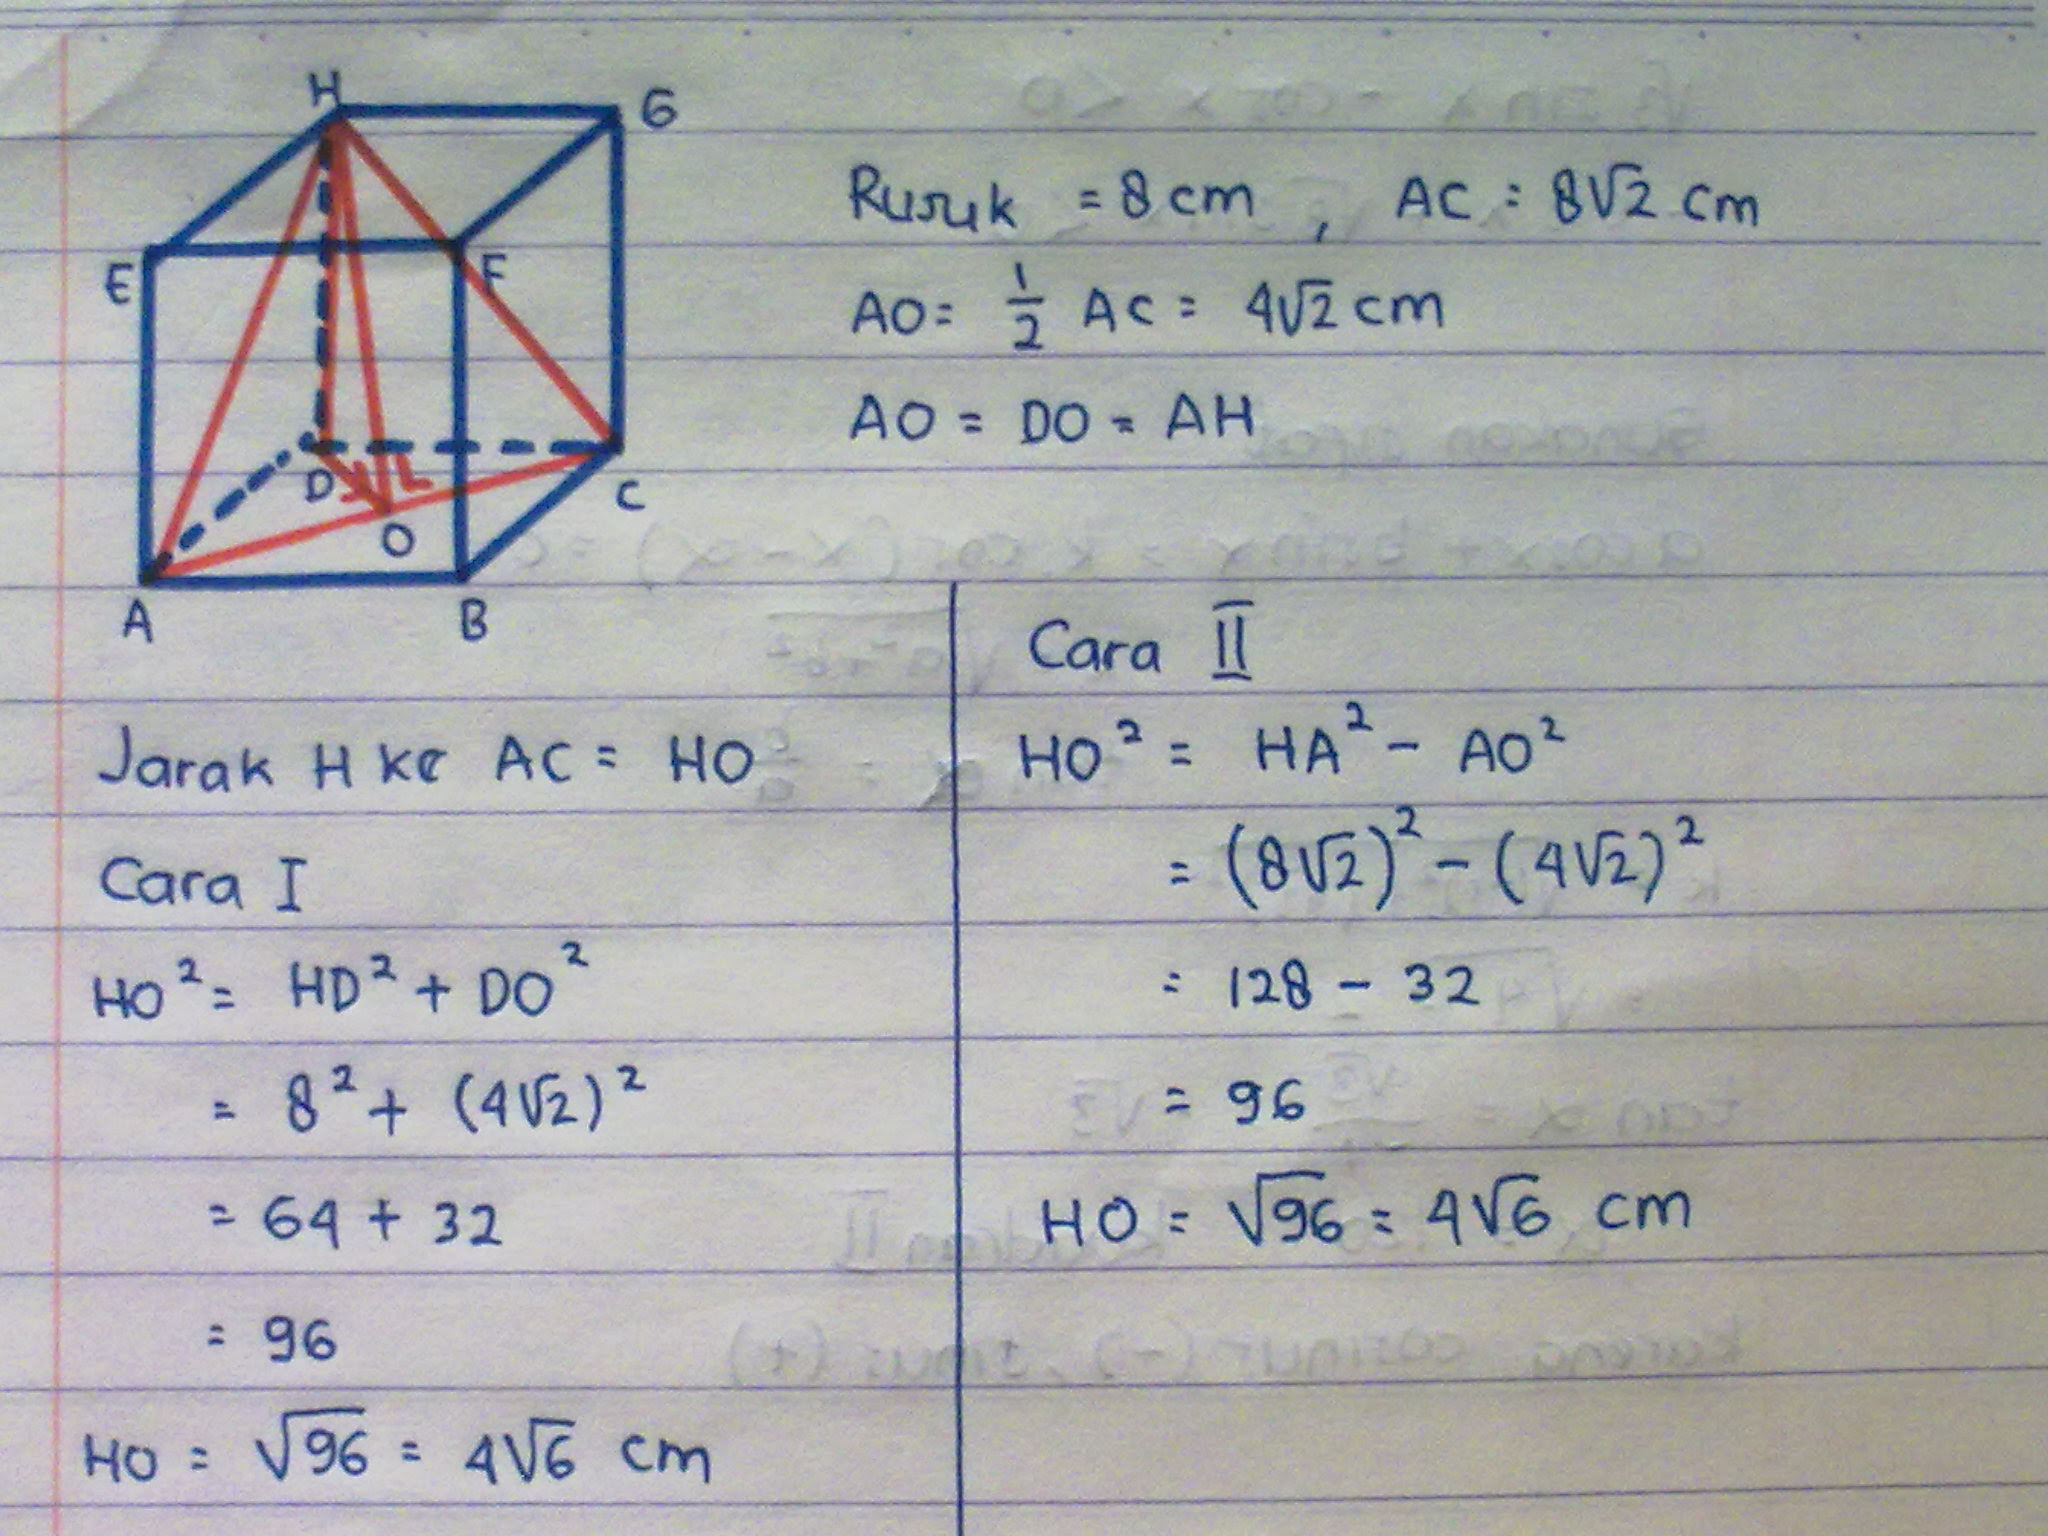 H
G
E
F
D
C
O
A
B
Rusuk = 8 cm , AC = 8√2 cm
AO = 1/2 AC = 4√2 cm
AO = DO = AH
Jarak H ke AC = HO
Cara I
HO² = HD² + DO²
= 8² + (4√2)²
= 64 + 32
= 96
HO = √96 = 4√6 cm
Cara II
HO² = HA² - AO²
= (8√2)² - (4√2)²
= 128 - 32
= 96
HO = √96 = 4√6 cm